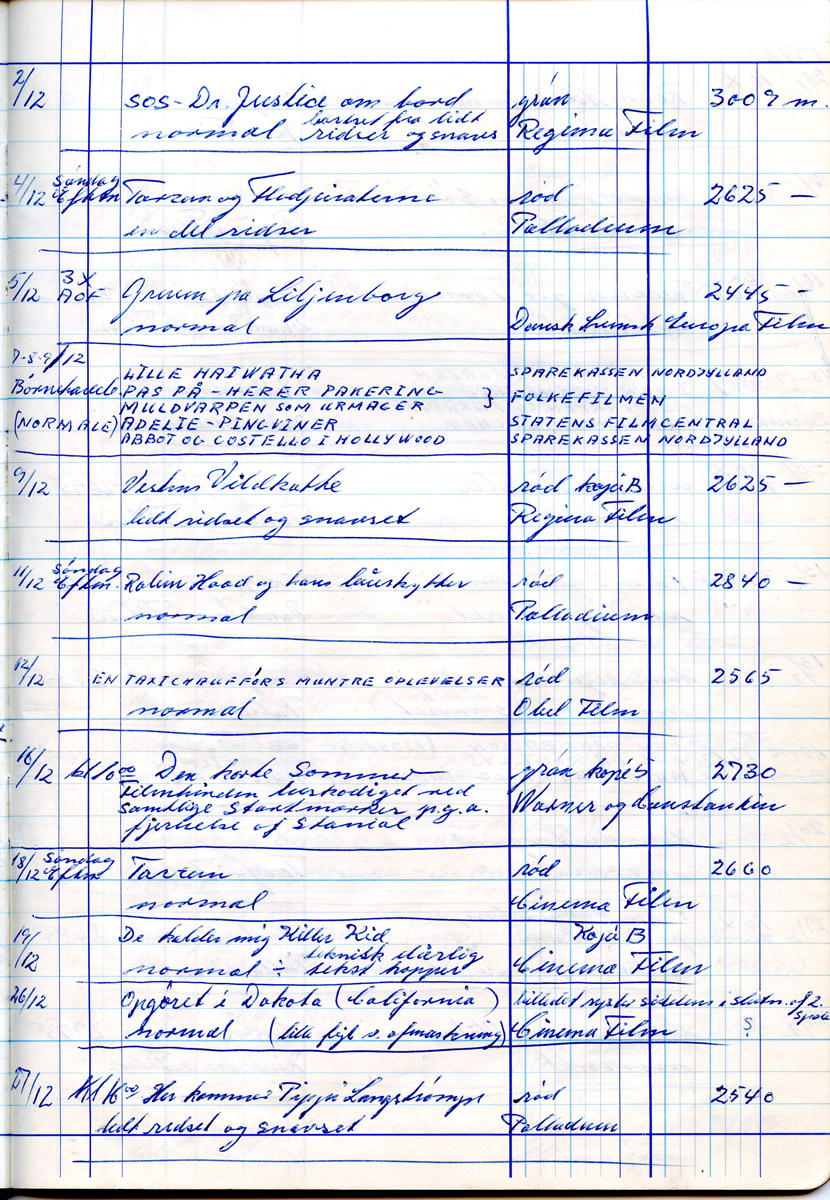 2/12 SOS - Dr. Justice om bord grøn 3009 m.
normal bortset fra lidt ridser og snavs Regina Film
4/12 Søndag Eftm Tarzan og Flodpiraterne rød 2625 —
en del ridser Palladium
5/12 3X AOF Greven på Liljenborg 2445 —
normal Dansk Svensk Europa Film
7-8-9/12 LILLE HAIWATHA SPAREKASSEN NORDJYLLAND
PAS PÅ - HERER PAKERING } FOLKEFILMEN
MULDVARPEN SOM URMAGER
(NORMALE) ADELIE - PINGVINER STATENS FILMCENTRAL
ABBOT OG COSTELLO I HOLLYWOOD SPAREKASSEN NORDJYLLAND
9/12 Vestens Vildkatte rød kopi B 2625 —
lidt ridset og snavset Regina Film
11/12 Søndag Eftm. Robin Hood og hans bueskytter rød 2840 —
normal Palladium
12/12 EN TAXICHAUFFÓRS MUNTRE OPLEVELSER rød 2565
normal Obel Film
16/12 kl 16 00 Den korte Sommer grøn kopi 5 2730
Filmbinden beskadiget ved Warner og Constantin
samtlige Startmærker p.g.a.
fjernelse af Staniol
18/12 Søndag Eftm Tarzan rød 2660
normal Cinema Film
19/12 De kalder mig Killer Kid Kopi B
normal ÷ teknisk dårlig tekst kopper Cinema Film
26/12 Opgöret i Dakota (California) billedet ryster sidelæns i slutn. af 2. Spole
normal (lille fejl v. afmaskning) Cinema Film
27/12 Kl 16 00 Her kommer Pippi Langstrømpe rød 2540
lidt ridset og snavset Palladium